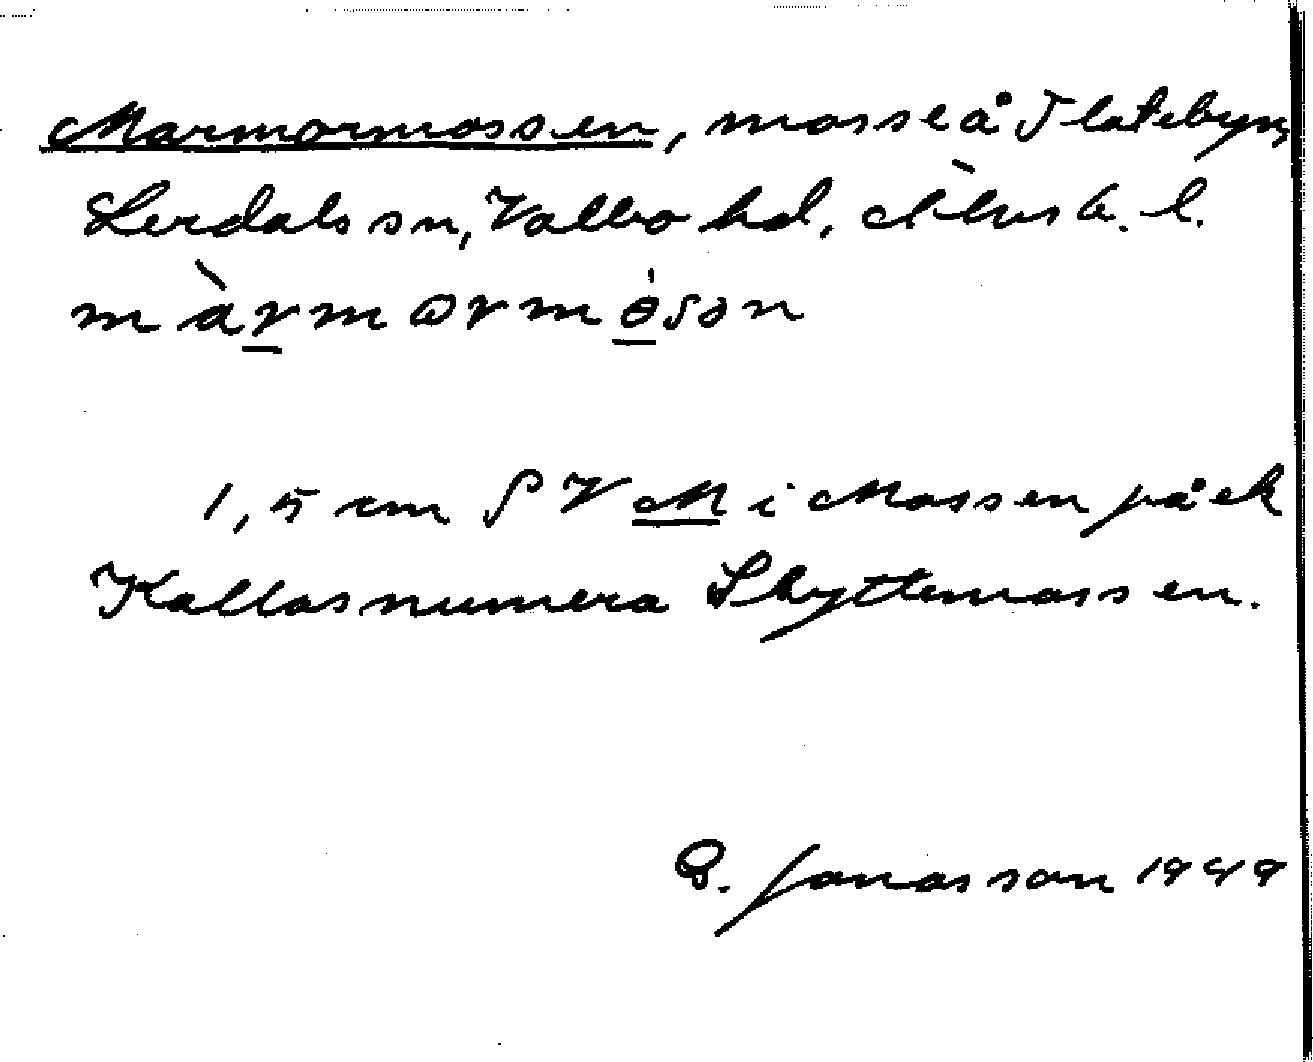 Marmormossen, mosse å Flatebyn,
Lerdals sn, Valbo hd, Älvsb. l.
màrmɷrmósən
1,5 cm SV M i Mossen på ek
Kallas numera Skyttemossen.
Jonasson 1949